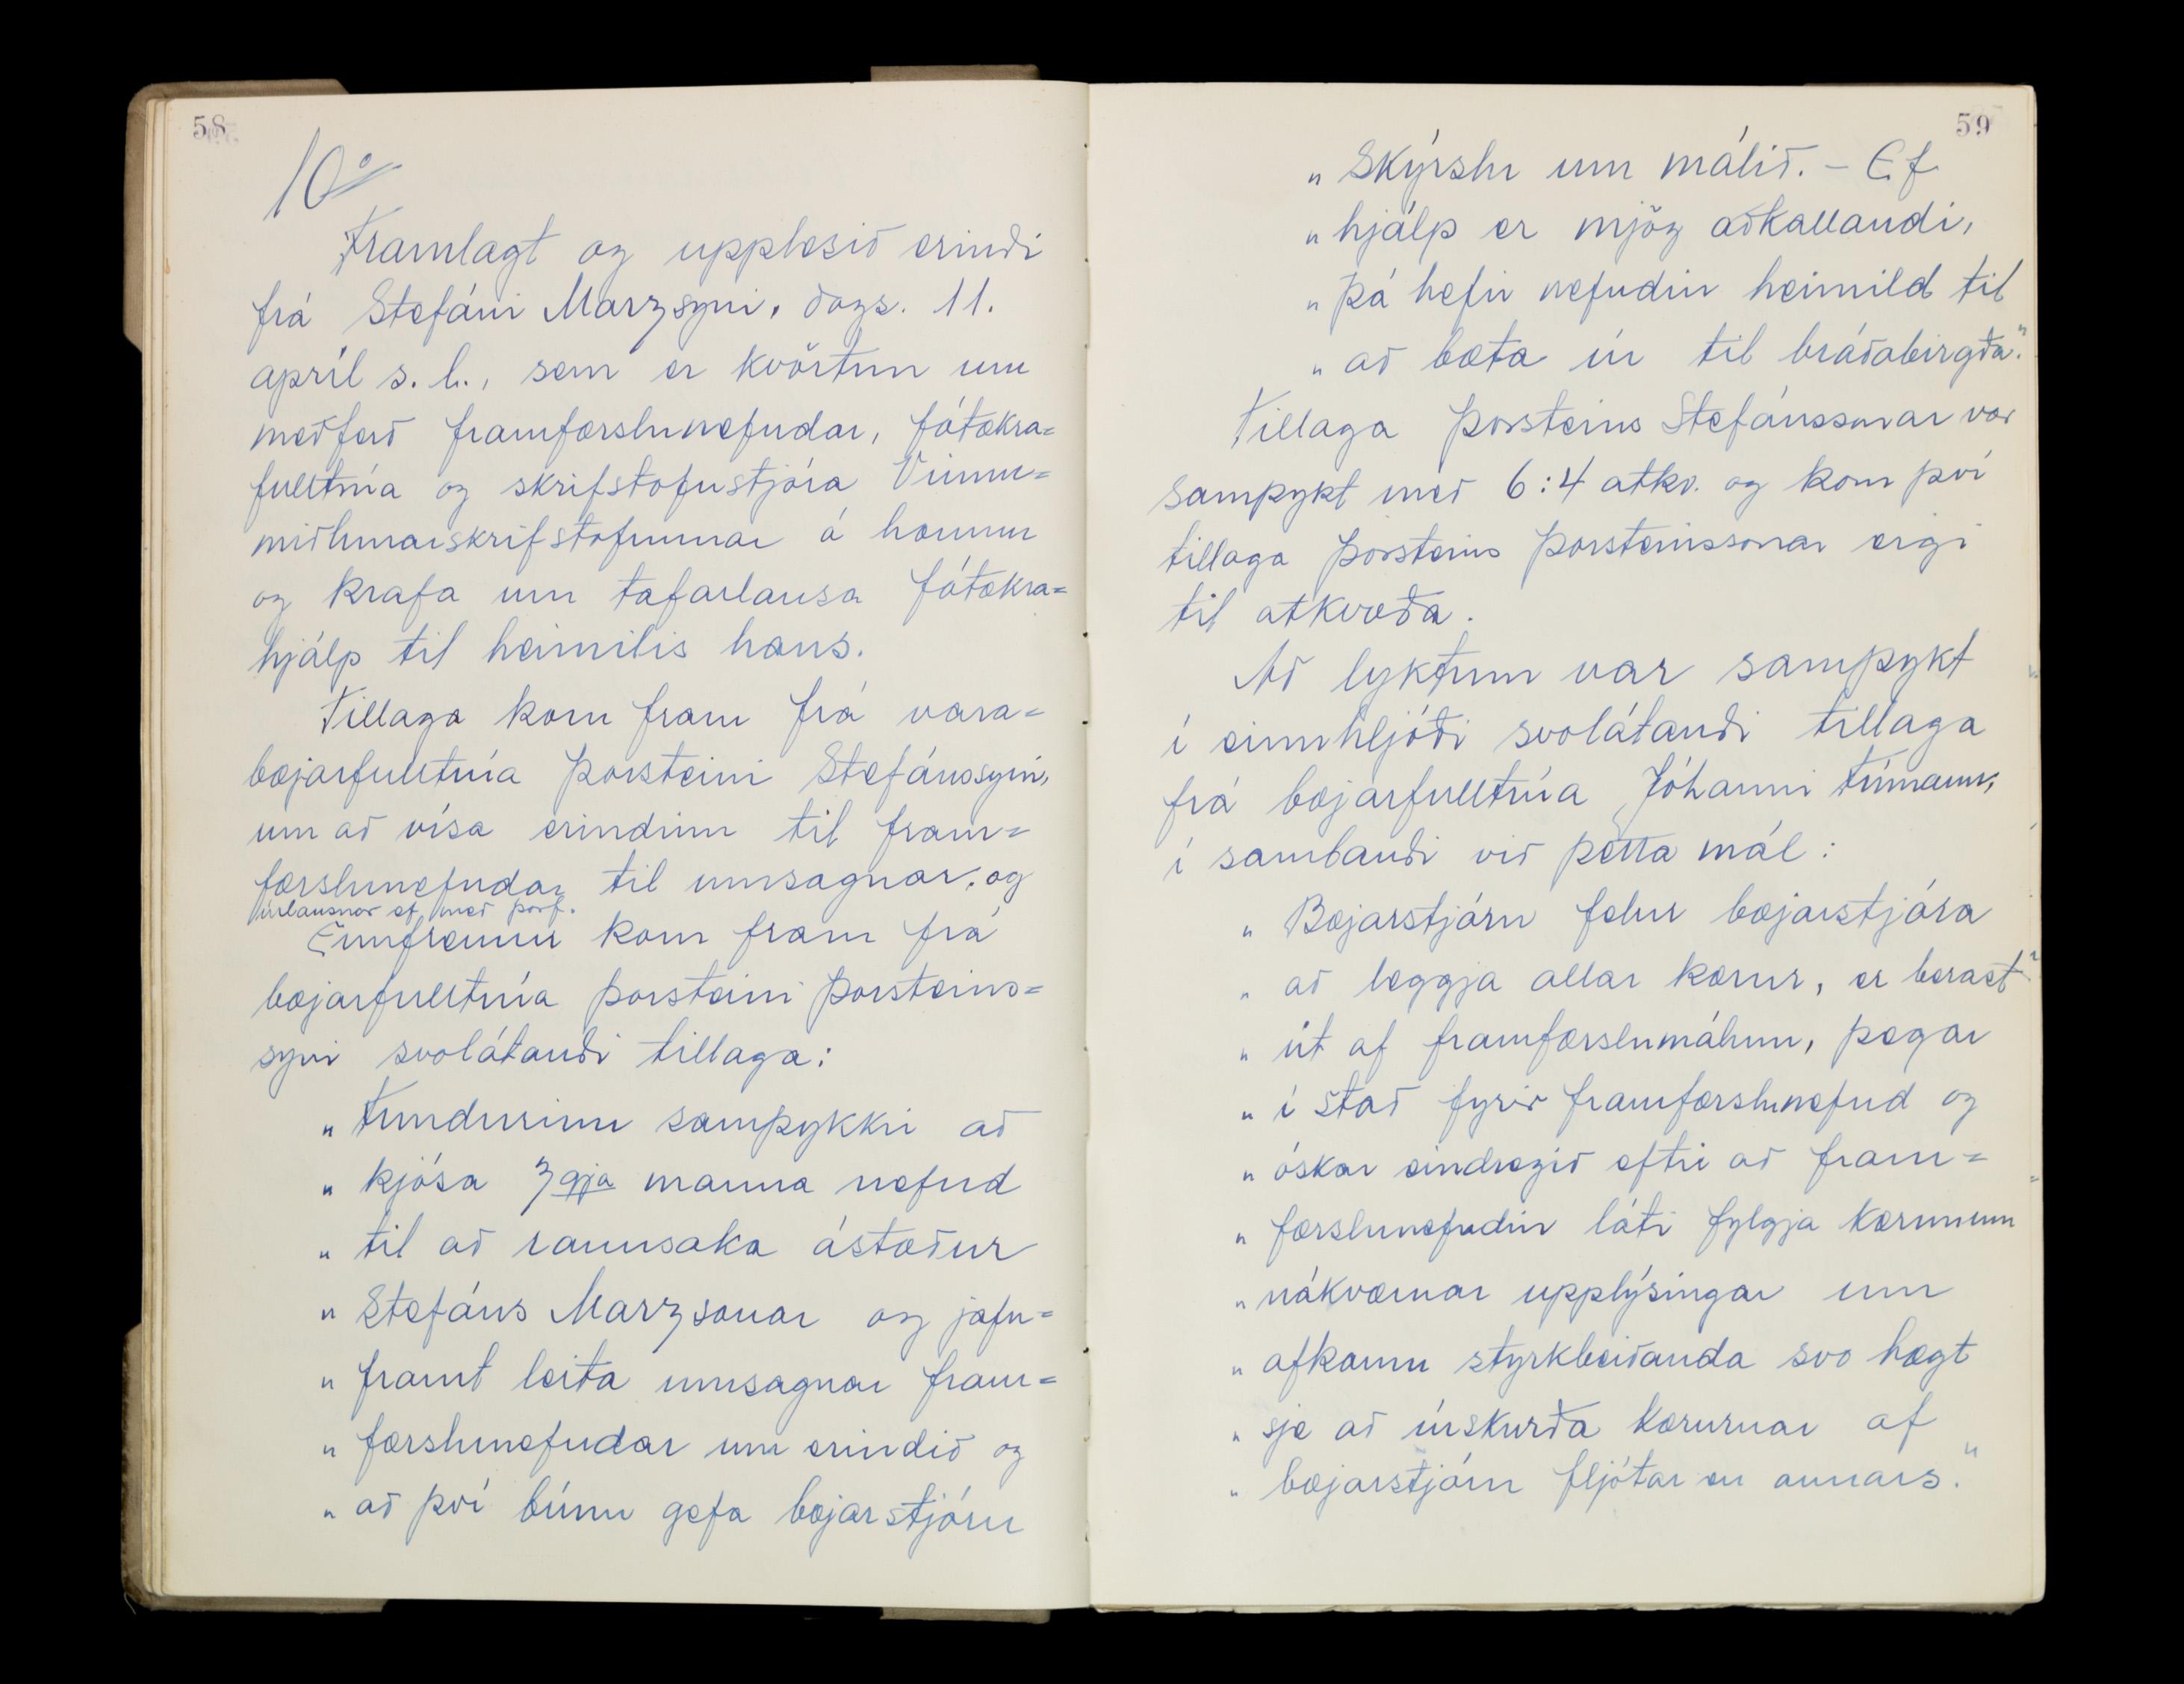 58
10°
Framlagt og upplesið erindi
frá Stefáni Marzsyni, dags. 11.
apríl s.l., sem er kvörtun um
meðferð framfærslunefndar, fátækra=
fulltrúa og skrifstofustjóra Vinnu=
miðlunarskrifstofunnar á honum
og krafa um tafarlausa fátækra=
hjálp til heimilis hans.
Tillaga kom fram frá vara=
bæjarfulltrúa Þorsteini Stefánssyni,
um að vísa erindinu til fram=
færslunefndar til umsagnar, og
úrlausnar ef með þarf.
Ennfremur kom fram frá
bæjarfulltrúa Þorsteini Þorsteins=
syni svolátandi tillaga:
„ Fundurinn samþykkir að
„ kjósa 3 gja manna nefnd
„ til að rannsaka ástæður
„ Stefáns Marzsonar og jafn=
„ framt leita umsagnar fram=
„ færslunefndar um erindið og
„ að því búnu gefa bæjarstjórn
59
„ Skýrslu um málið. – Ef
„ hjálp er mjög aðkallandi,
„ þá hefir nefndin heimild til
„ að bæta úr til bráðabirgða."
Tillaga Þorsteins Stefánssonar var
samþykt með 6:4 atkv. og kom því
tillaga Þorsteins Þorsteinssonar eigi
til atkvæða.
Að lyktum var samþykt
í einuhljóði svolátandi tillaga
frá bæjarfulltrúa Jóhanni Fímann,
í sambandi við þetta mál:
„ Bæjarstjórn felur bæjarstjóra
„ að leggja allar kærur, er berast
„ út af framfærslumálum, þegar
„ í stað fyrir framfærslunefnd og
„ óskar eindregið eftir að fram=
„ færslunefndin láti fylgja kærunum
„ nákvæmar upplýsingar um
„ afkomu styrkbeiðanda svo hægt
„ sje að úrskurða kærurnar af
„ bæjarstjórn fljótar en annars."